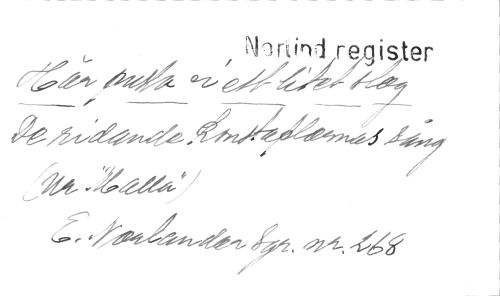 Nortind register
Här pusta vi ett litet slag
De ridande konstaplarnas sång
(ur "Halla")
E. Norlander Sgr. nr. 268